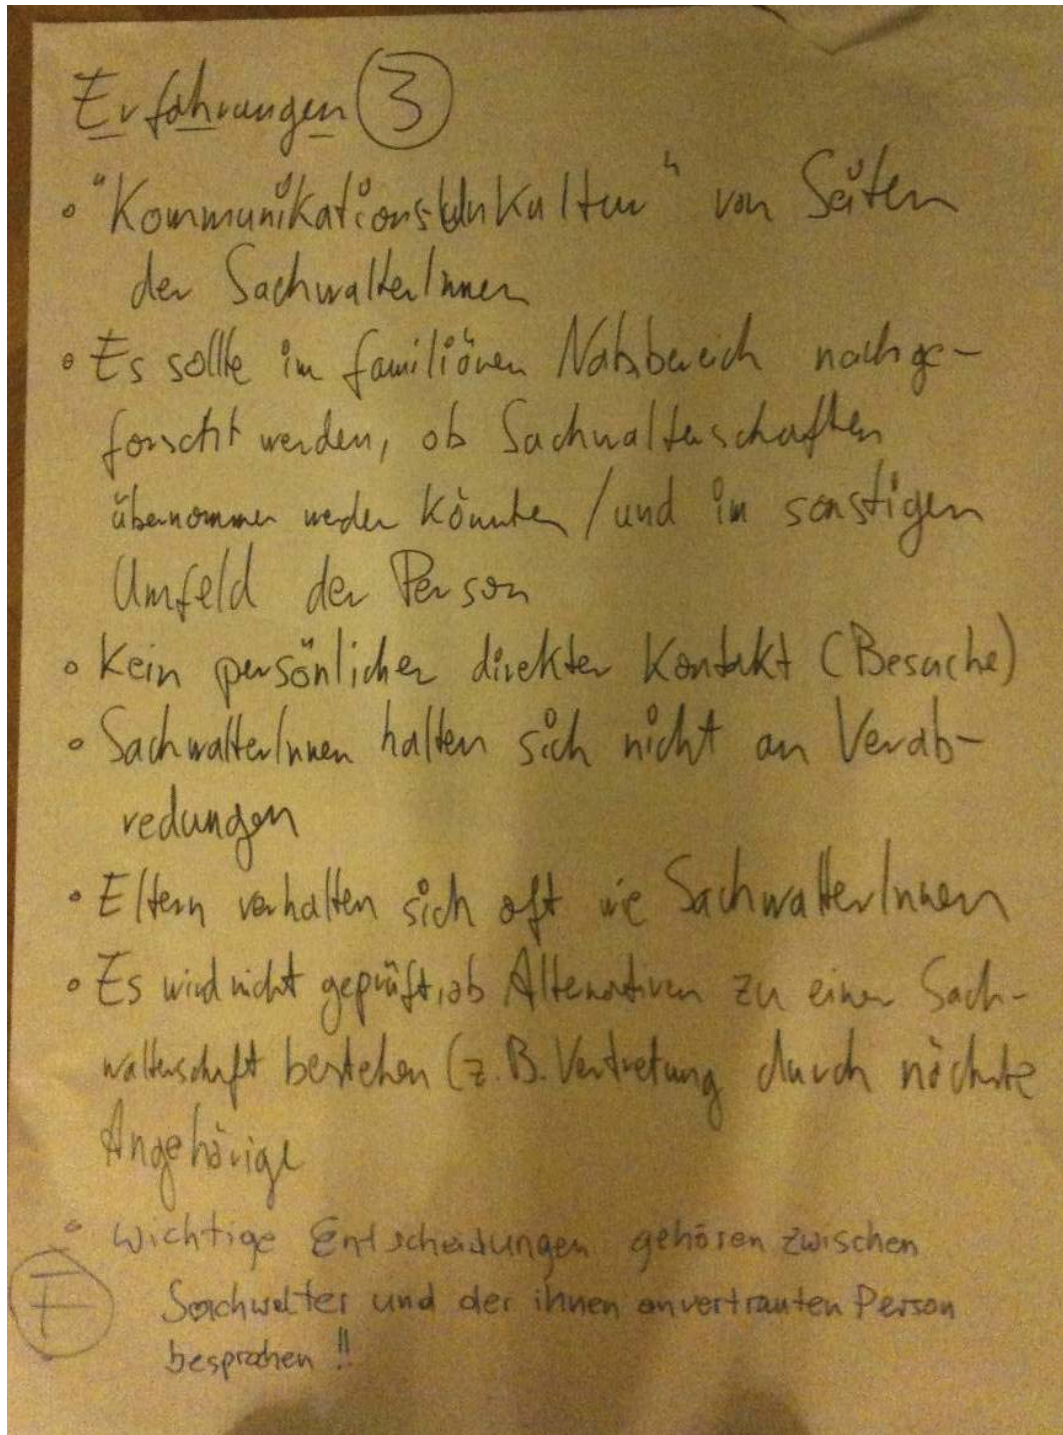 Erfahrungen 3
• "Kommunikationsunkultur" von Seiten
der SachwalterInnen
• Es sollte im familiären Nahbereich nachge-
forscht werden, ob Sachwalterschaften
übernommen werden könnten / und im sonstigen
Umfeld der Person
• Kein persönlicher direkter Kontakt (Besuche)
• SachwalterInnen halten sich nicht an Verab-
redungen
• Eltern verhalten sich oft wie SachwalterInnen
• Es wird nicht geprüft, ob Alternativen zu einer Sach-
walterschaft bestehen (z.B. Vertretung durch nächste
Angehörige
• wichtige Entscheidungen gehören zwischen
F Sachwalter und der ihnen anvertrauten Person
besprochen !!